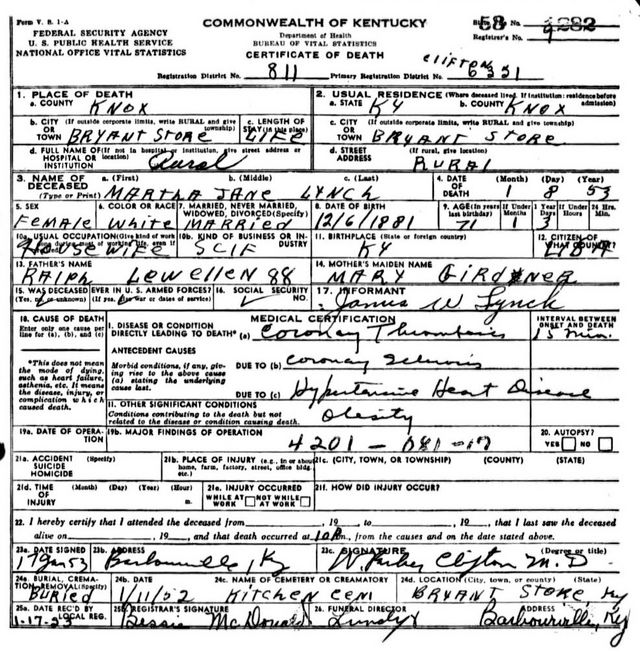 Form V. S. 1-A
COMMONWEALTH OF KENTUCKY
FEDERAL SECURITY AGENCY
U. S. PUBLIC HEALTH SERVICE
NATIONAL OFFICE VITAL STATISTICS
Department of Health
BUREAU OF VITAL STATISTICS
CERTIFICATE OF DEATH
53 No.
Registrar's No.
Clifton
Registration District No. 811 Primary Registration District No. 6331
1. PLACE OF DEATH
a. COUNTY KNOX
2. USUAL RESIDENCE (Where deceased lived. If institution: residence before admission)
a. STATE KY b. COUNTY KNOX
b. CITY (If outside corporate limits, write RURAL and give township) OR TOWN BRYANT STORE
c. LENGTH OF STAY (in this place) LIFE
c. CITY (If outside corporate limits, write RURAL and give township) OR TOWN BRYANT STORE
d. FULL NAME OF (If not in hospital or institution, give street address or location) HOSPITAL OR INSTITUTION Rural
d. STREET ADDRESS (If rural, give location) RURAL
3. NAME OF DECEASED (Type or Print)
a. (First) b. (Middle) c. (Last)
MARTHA JANE LYNCH
4. DATE OF DEATH (Month) (Day) (Year)
1 8 53
5. SEX Female
6. COLOR OR RACE White
7. MARRIED, NEVER MARRIED, WIDOWED, DIVORCED (Specify) MARRIED
8. DATE OF BIRTH 12/6/1881
9. AGE (In years last birthday) 71
If Under 1 Year Months 1 Days 3
If Under 24 Hrs. Hours Min.
10a. USUAL OCCUPATION (Give kind of work done during most of working life, even if retired) Housewife
10b. KIND OF BUSINESS OR INDUSTRY SCIF
11. BIRTHPLACE (State or foreign country) KY
12. CITIZEN OF WHAT COUNTRY? USA
13. FATHER'S NAME RALPH Lewellen 88
14. MOTHER'S MAIDEN NAME MARY GIRDNER
15. WAS DECEASED EVER IN U. S. ARMED FORCES? (Yes, no or unknown) (If yes, give war or dates of service)
16. SOCIAL SECURITY NO.
17. INFORMANT James W Lynch
18. CAUSE OF DEATH
Enter only one cause per line for (a), (b), and (c)
MEDICAL CERTIFICATION
INTERVAL BETWEEN ONSET AND DEATH
I. DISEASE OR CONDITION DIRECTLY LEADING TO DEATH* (a) Coronary Thrombosis 15 min.
*This does not mean the mode of dying, such as heart failure, asthenia, etc. It means the disease, injury, or complication which caused death.
ANTECEDENT CAUSES
Morbid conditions, if any, giving rise to the above cause (a) stating the underlying cause last.
DUE TO (b) Coronary Sclerosis
DUE TO (c) Hypertensive Heart Disease
II. OTHER SIGNIFICANT CONDITIONS
Conditions contributing to the death but not related to the disease or condition causing death. Obesity
19a. DATE OF OPERATION
19b. MAJOR FINDINGS OF OPERATION
4201 - 081-17
20. AUTOPSY? YES NO
21a. ACCIDENT SUICIDE HOMICIDE (Specify)
21b. PLACE OF INJURY (e.g., in or about home, farm, factory, street, office bldg. etc.)
21c. (CITY, TOWN, OR TOWNSHIP) (COUNTY) (STATE)
21d. TIME OF INJURY (Month) (Day) (Year) (Hour) m.
21e. INJURY OCCURRED WHILE AT WORK NOT WHILE AT WORK
21f. HOW DID INJURY OCCUR?
22. I hereby certify that I attended the deceased from , 19 to , 19 , that I last saw the deceased
alive on , 19 , and that death occurred at 10P m., from the causes and on the date stated above.
23a. DATE SIGNED 17Jan53
23b. ADDRESS Barbourville, Ky
23c. SIGNATURE (Degree or title) Clifton M.D.
24a. BURIAL, CREMATION REMOVAL (Specify) BURIED
24b. DATE 1/11/52
24c. NAME OF CEMETERY OR CREAMATORY KITCHEN CEM
24d. LOCATION (City, town, or county) (State) BRYANT STORE, Ky
25a. DATE REC'D BY LOCAL REG. 1-17-53
25b. REGISTRAR'S SIGNATURE Bessie McDonald
26. FUNERAL DIRECTOR Lundy
ADDRESS Barbourville, Ky